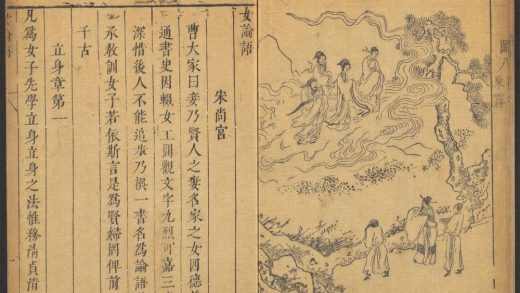 女論語
宋尚宮
曹大家曰妾乃賢人之妻名家之女四德
通書史因輟女工閒觀文字九烈可嘉三
深惜後人不能追步乃撰一書名為論語
承教訓女子若依斯言是為賢婦罔俾前
千古
立身章第一
凡為女子先學立身立身之法惟務清貞清